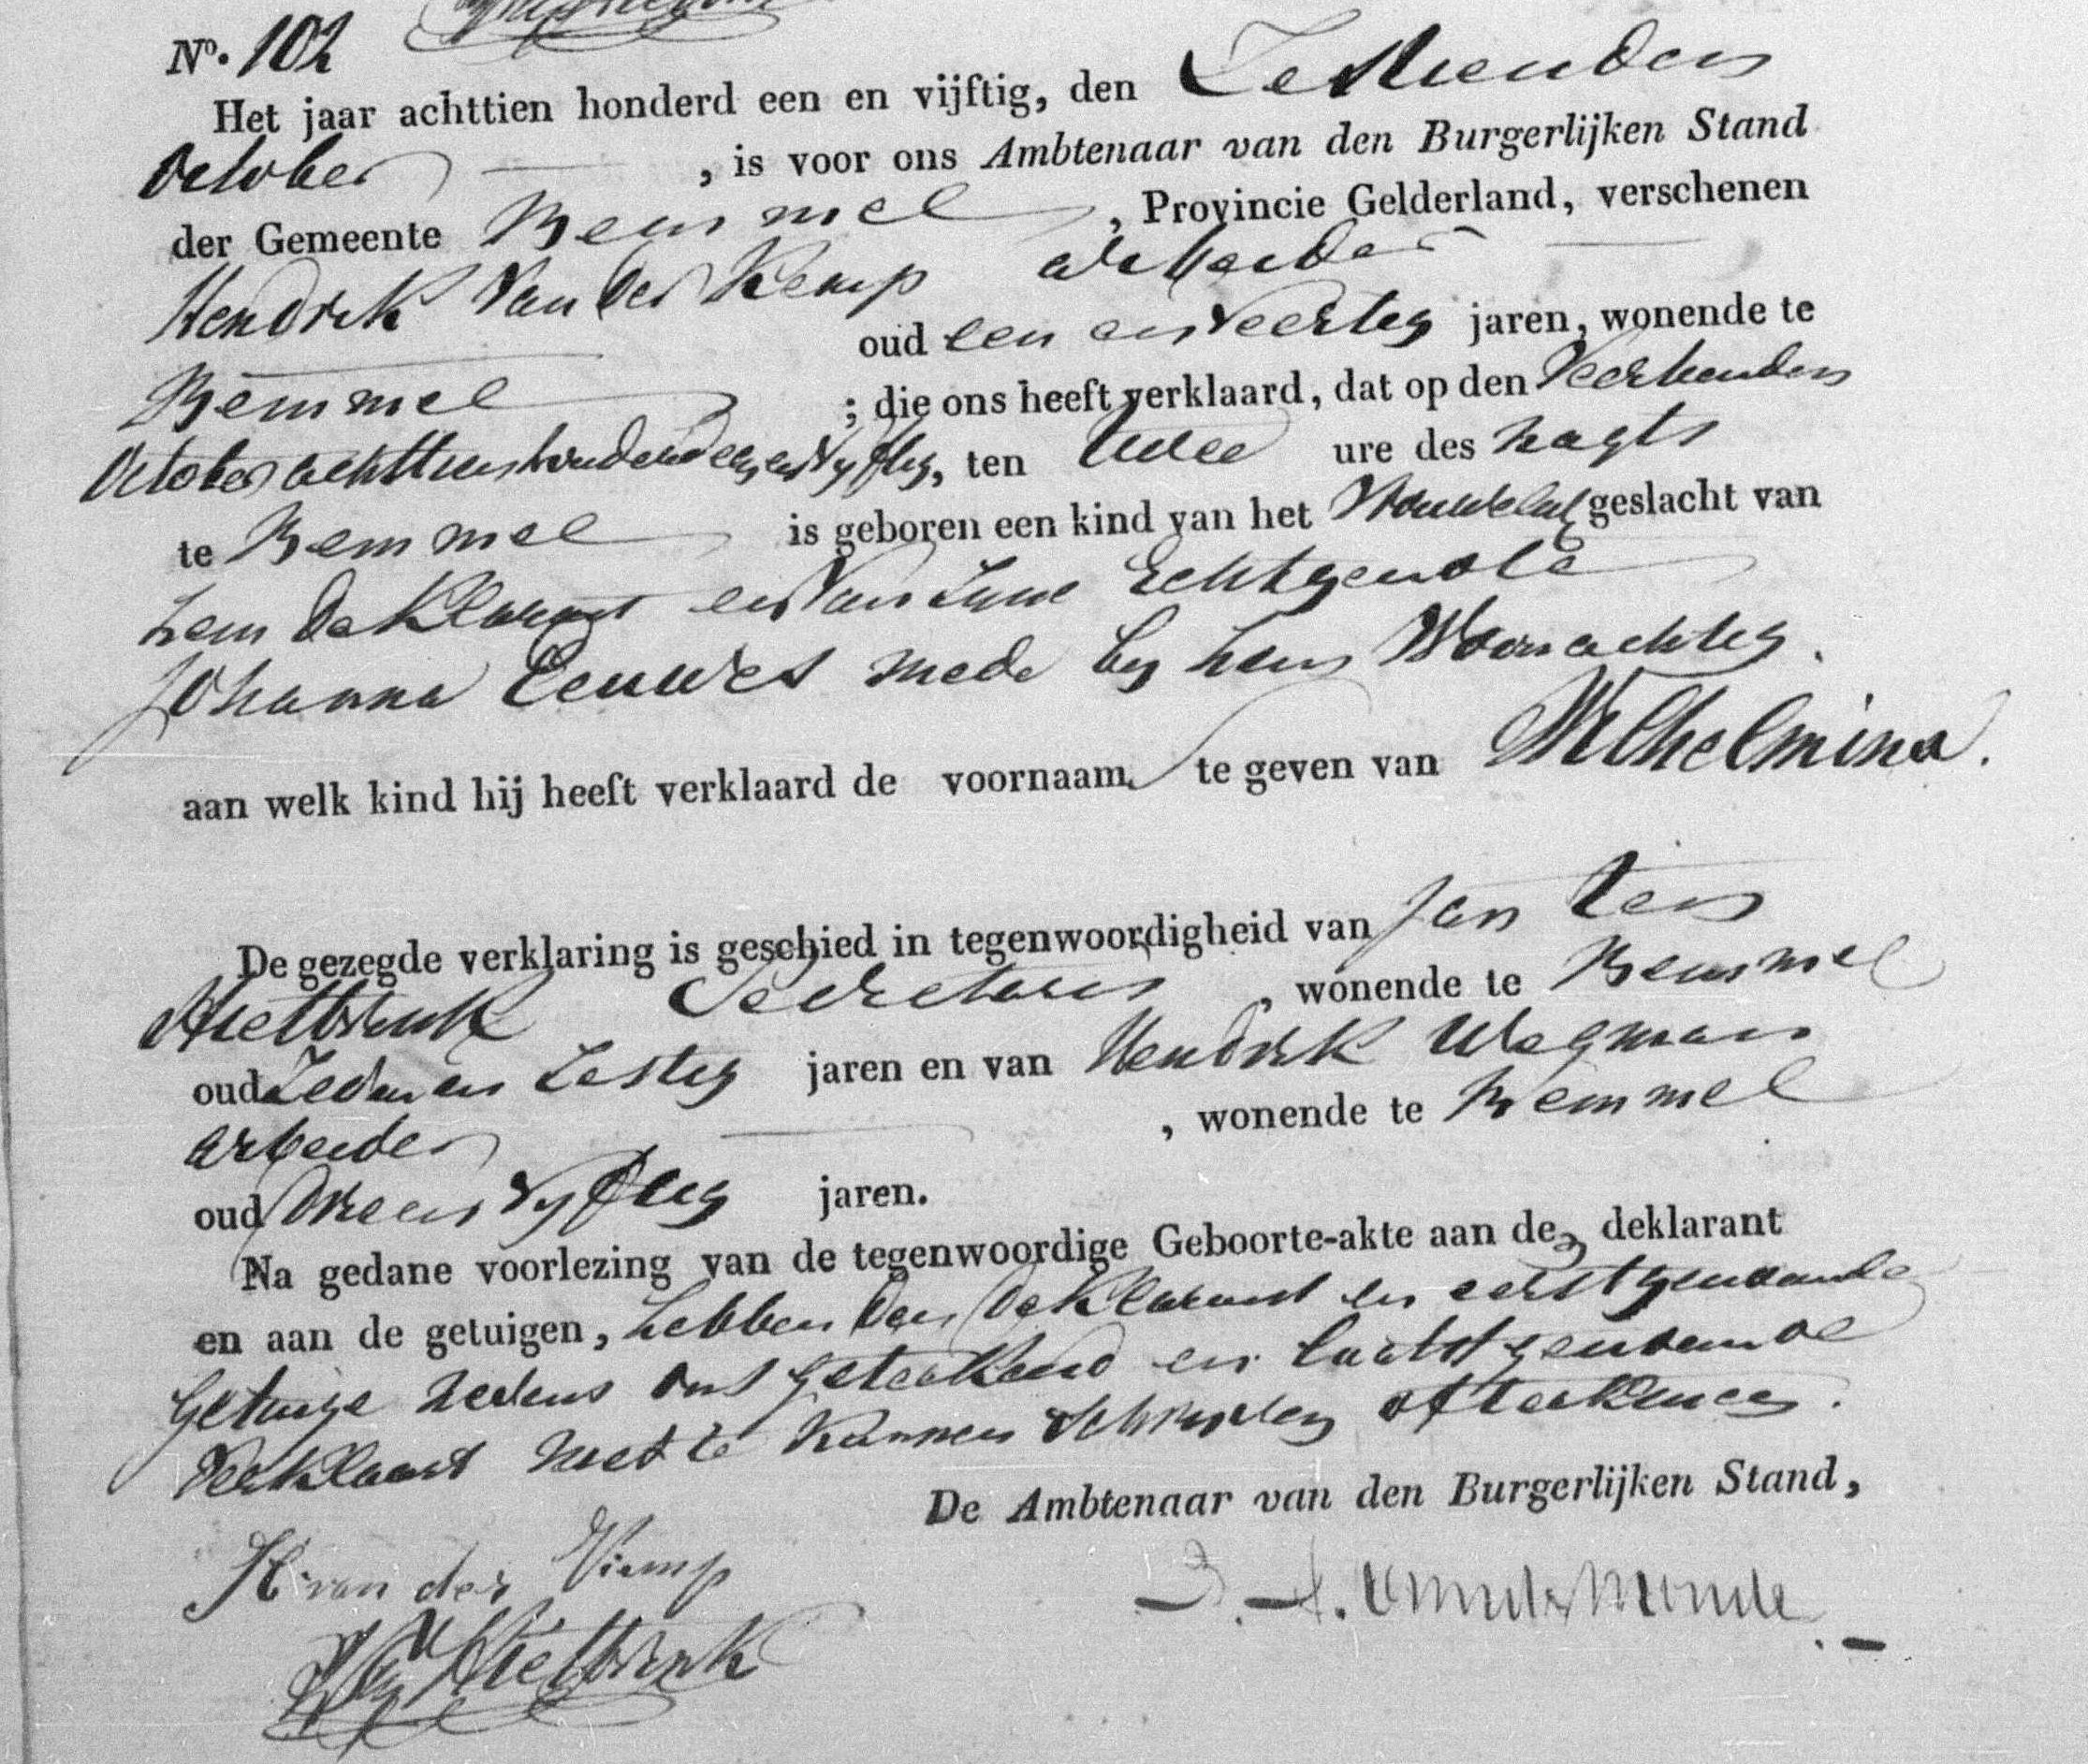 Nº. 102
Het jaar achttien honderd een en vijftig, den Zestienden
October, is voor ons Ambtenaar van den Burgerlijken Stand
der Gemeente Bemmel, Provincie Gelderland, verschenen
Hendrik van der Kemp arbeider
oud een en veertig jaren, wonende te
Bemmel; die ons heeft verklaard, dat op den Veertienden
October achttienhonderd een en vyftig, ten twee ure des nagts
te Bemmel is geboren een kind van het Vrouwelyk geslacht van
hem deklarant en van zyne Echtgenote
Johanna Eeuwes mede by hem Woonachtig.
aan welk kind hij heeft verklaard de voornaam te geven van Wilhelmina.
De gezegde verklaring is geschied in tegenwoordigheid van Jan
Secretaris, wonende te Bemmel
oud Zeven en Zestig jaren en van Hendrik Wegman
arbeider, wonende te Bemmel
oud Drie en vyftig jaren.
Na gedane voorlezing van de tegenwoordige Geboorte-akte aan den deklarant
en aan de getuigen, hebben den deklarant en eerstgenoemde
getuige nevens ons geteekend en laatstgenoemde
verklaart niet te kunnen schryven of teekenen.
De Ambtenaar van den Burgerlijken Stand,
H van der Kemp